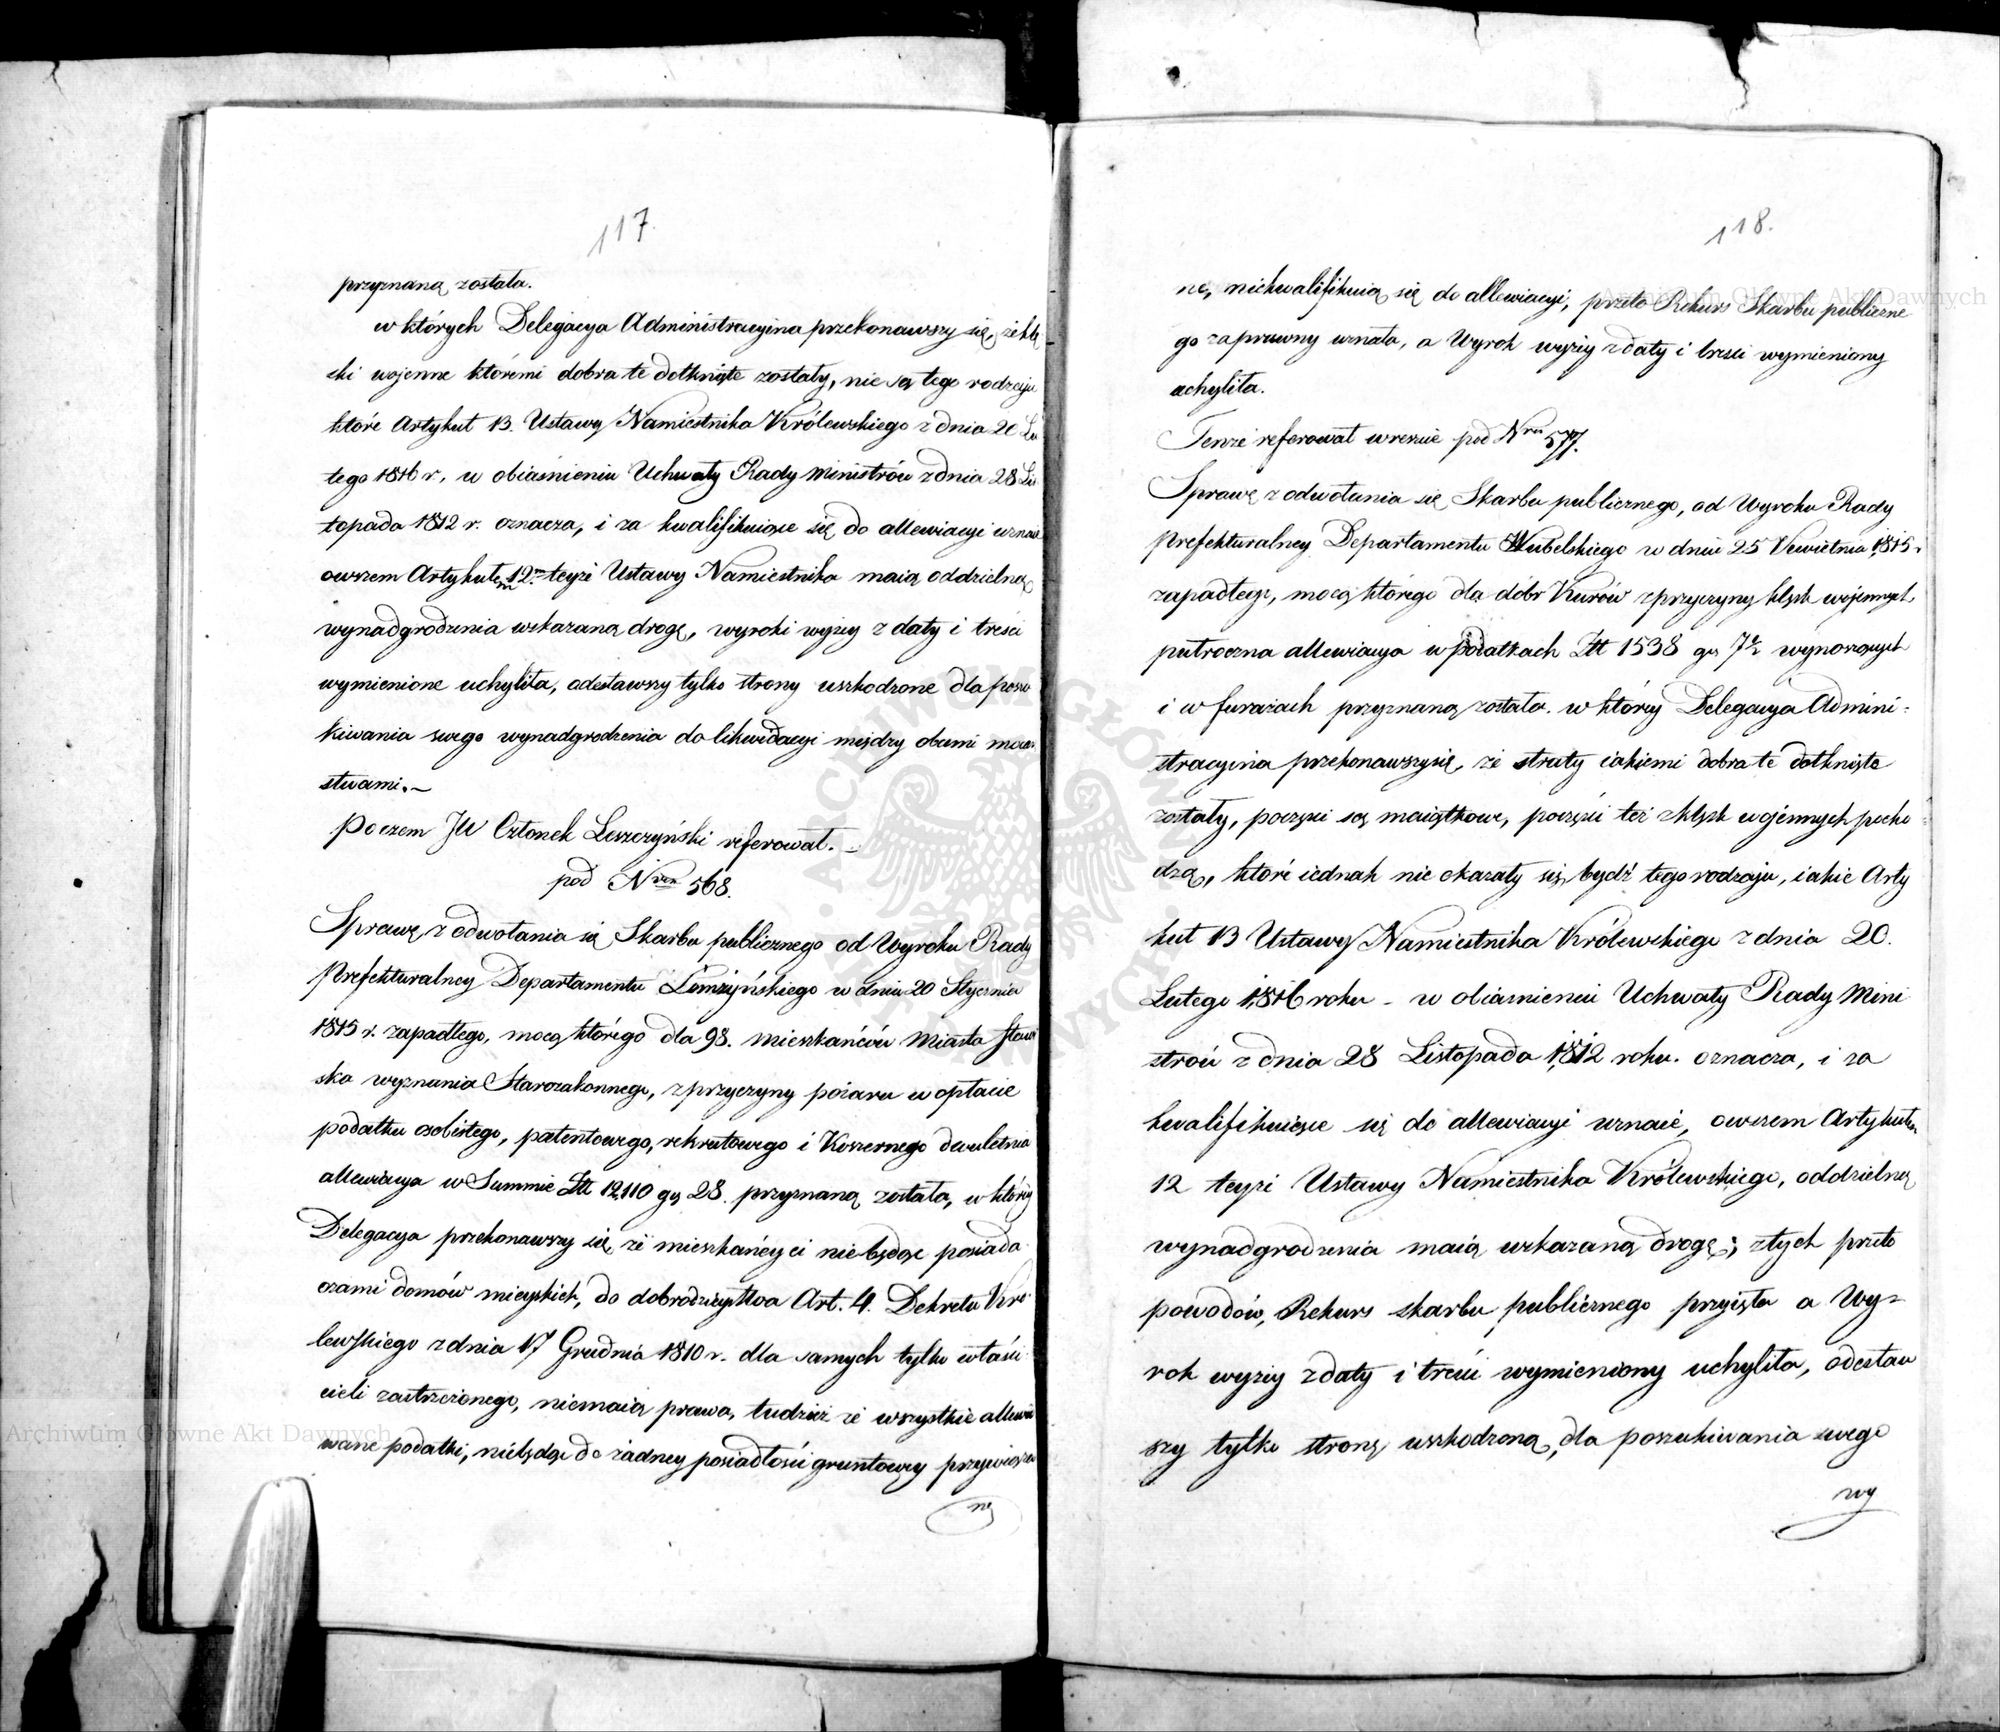 117
przyznaną została.
w których Delegacya Administracyina przekonawszy się, że klę
ski wojenne któremi dobra te dotknięte zostały, nie są tego rodzaju
które Artykuł 13. Ustawy Namiestnika Królewskiego z dnia 20 Lu
tego 1816 r., w obiaśnieniu Uchwały Rady Ministrów z dnia 28 Lis
topada 1812 r. oznacza, i za kwalifikuiące się do allewiacyi uznaie
owszem Artykułem 12m teyże Ustawy Namiestnika maią oddzielną
wynadgrodzenia wskazaną drogę, wyroki wyżey z daty i treści
wymienione uchyliła, odesławszy tylko strony uszkodzone dla poszu
kiwania swego wynadgrodzenia do likwidacyi między obumi mocar
stwami.
Poczem JW Członek Leszczyński referował.
pod Nrem 568.
Sprawę z odwołania się Skarbu publicznego od Wyroku Rady
Prefekturalney Departamentu Łomżyńskiego w dniu 20 Stycznia
1815 r. zapadłego, mocą którego dla 98. mieszkańców Miasta Stawi
ska wyznania Starozakonnego, z przyczyny pożaru w opłacie
podatku osobistego, patentowego, rekrutowego i Koszernego dwuletnia
allewiacya w Summie Złt 12,110 gr 28. przyznaną została, w którey
Delegacya przekonawszy się, że mieszkańcy ci nie będąc posiada
czami domów mieyskich, do dobrodzieystwa Art. 4. Dekretu Kró
lewskiego z dnia 17 Grudnia 1810 r. dla samych tylko właści
cieli zastrzeżonego, niemaią prawa, tudzież że wszystkie allewio
wane podatki, niebędąc do żadney posiadłości gruntowey przywiąza
ne
118.
ne, niekwalifikuią się do allewiacyi, przeto Rekurs Skarbu publiczne
go za prawny uznała, a Wyrok wyżey z daty i treści wymieniony
uchyliła.
Tenże referował wreszcie pod Nrem 577.
Sprawę z odwołania się Skarbu publicznego, od Wyroku Rady
Prefekturalney Departamentu Lubelskiego w dniu 25 Kwietnia 1815 r.
zapadłego, mocą którego dla dóbr Kurów z przyczyny klęsk wojennych,
półroczna allewiacya w podatkach Złt 1538 gr 7½ wynoszących
i w furażach przyznaną została. w którey Delegacya Admini-
stracyina przekonawszy się, że straty iakiemi dobra te dotknięte
zostały, poczęści są maiątkowe, poczęści też z klęsk wojennych pocho
dzą, które iednak nie okazały się bydź tego rodzaju, iakie Arty
kuł 13 Ustawy Namiestnika Królewskiego z dnia 20.
Lutego 1816 roku - w obiaśnieniu Uchwały Rady Mini
strów z dnia 28 Listopada 1812 roku. oznacza, i za
kwalifikuiące się do allewiacyi uznaie, owszem Artykułem
12 teyże Ustawy Namiestnika Królewskiego, oddzielną
wynadgrodzenia maią wskazaną drogę; z tych przeto
powodów, Rekurs skarbu publicznego przyięła a Wy-
rok wyżey z daty i treści wymieniony uchyliła, odesław
szy tylko stronę uszkodzoną, dla poszukiwania swego
wy
Archiwum Główne Akt Dawnych
Archiwum Główne Akt Dawnych
ARCHIWUM GŁÓWNE AKT DAWNYCH